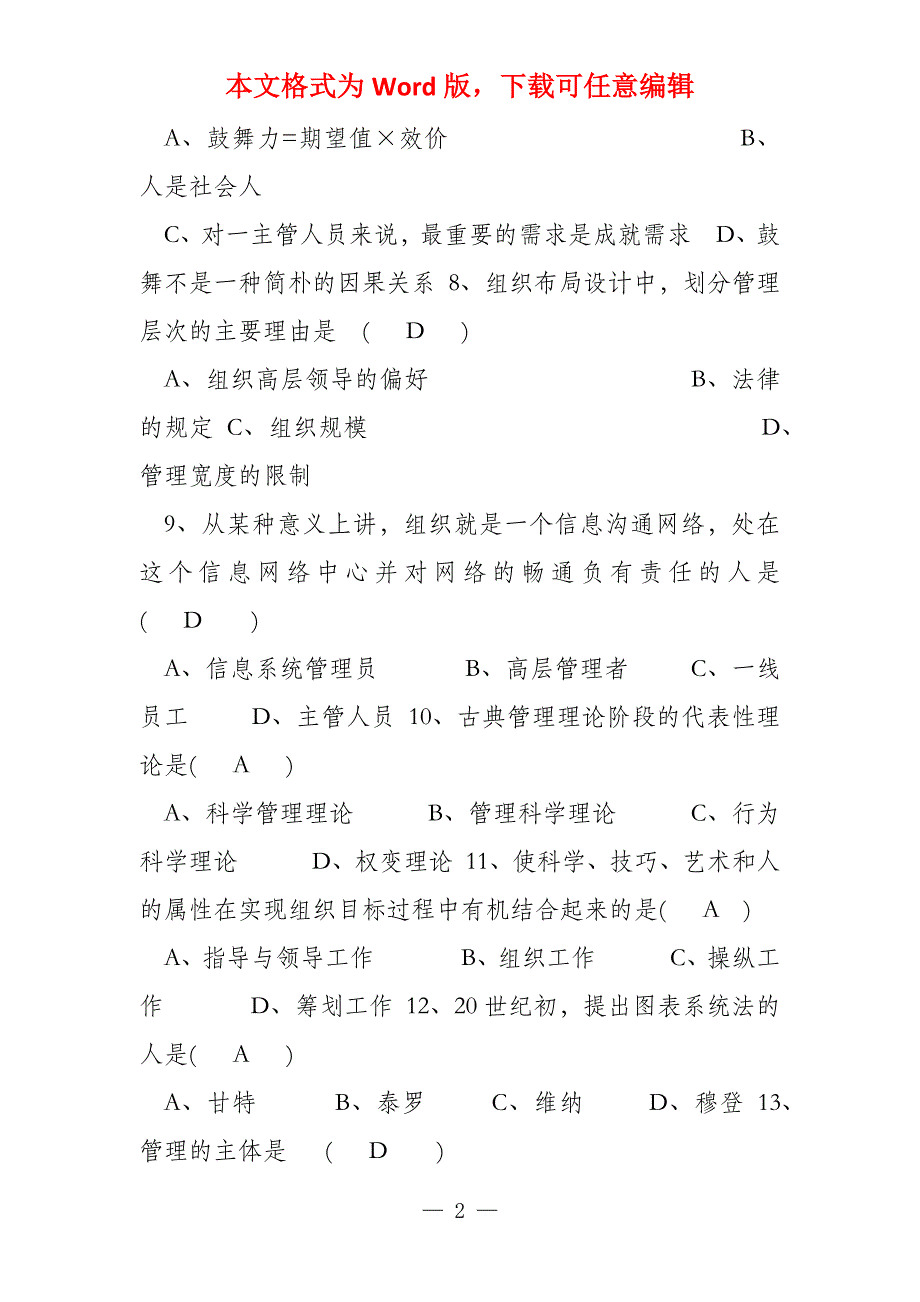 本文格式为 Word 版，下载可任意编辑
A、鼓舞力=期望值×效价 B、
人是社会人
C、对一主管人员来说，最重要的需求是成就需求 D、鼓
舞不是一种简朴的因果关系 8、组织布局设计中，划分管理
层次的主要理由是 ( D )
A、组织高层领导的偏好 B、法律
的规定 C、组织规模 D、
管理宽度的限制
9、从某种意义上讲，组织就是一个信息沟通网络，处在
这个信息网络中心并对网络的畅通负有责任的人是
( D )
A、信息系统管理员 B、高层管理者 C、一线
员工 D、主管人员 10、古典管理理论阶段的代表性理
论是( A )
A、科学管理理论 B、管理科学理论 C、行为
科学理论 D、权变理论 11、使科学、技巧、艺术和人
的属性在实现组织目标过程中有机结合起来的是( A )
A、指导与领导工作 B、组织工作 C、操纵工
作 D、筹划工作 12、20 世纪初，提出图表系统法的
人是( A )
A、甘特 B、泰罗 C、维纳 D、穆登 13、
管理的主体是 ( D )
— 2 —